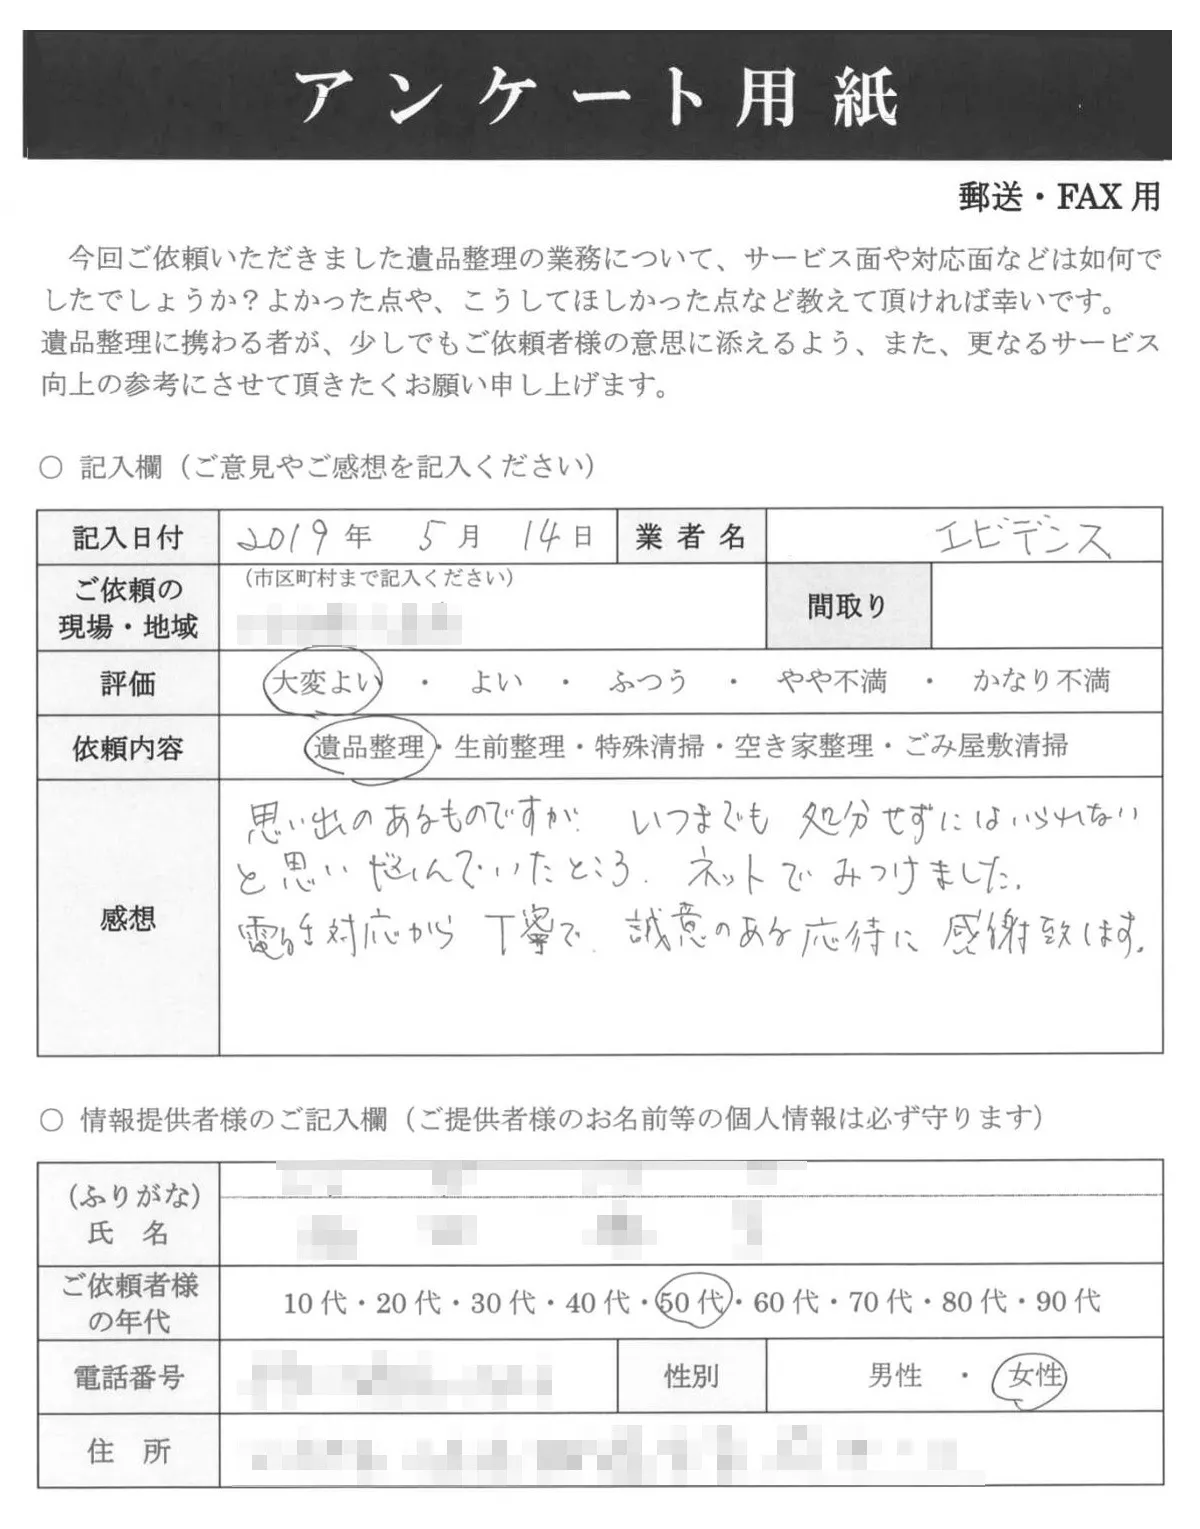 アンケート用紙
郵送・FAX 用
今回ご依頼いただきました遺品整理の業務について、サービス面や対応面などは如何で
したでしょうか？よかった点や、こうしてほしかった点など教えて頂ければ幸いです。
遺品整理に携わる者が、少しでもご依頼者様の意思に添えるよう、また、更なるサービス
向上の参考にさせて頂きたくお願い申し上げます。
○ 記入欄（ご意見やご感想を記入ください）
記入日付 2019年 5月 14日 業者名 エビデンス
ご依頼の
現場・地域 （市区町村まで記入ください） 間取り
評価 大変よい ・ よい ・ ふつう ・ やや不満 ・ かなり不満
依頼内容 遺品整理・生前整理・特殊清掃・空き家整理・ごみ屋敷清掃
感想
思い出のあるものですが、いつまでも 処分せずにはいられない
と思い悩んでいたところ、ネットでみつけました。
電話対応から 丁寧で、誠意のある応待に 感謝致します。
○ 情報提供者様のご記入欄（ご提供者様のお名前等の個人情報は必ず守ります）
（ふりがな）
氏 名
ご依頼者様
の年代 10 代・20 代・30 代・40 代・50 代・60 代・70 代・80 代・90 代
電話番号 性別 男性 ・ 女性
住 所